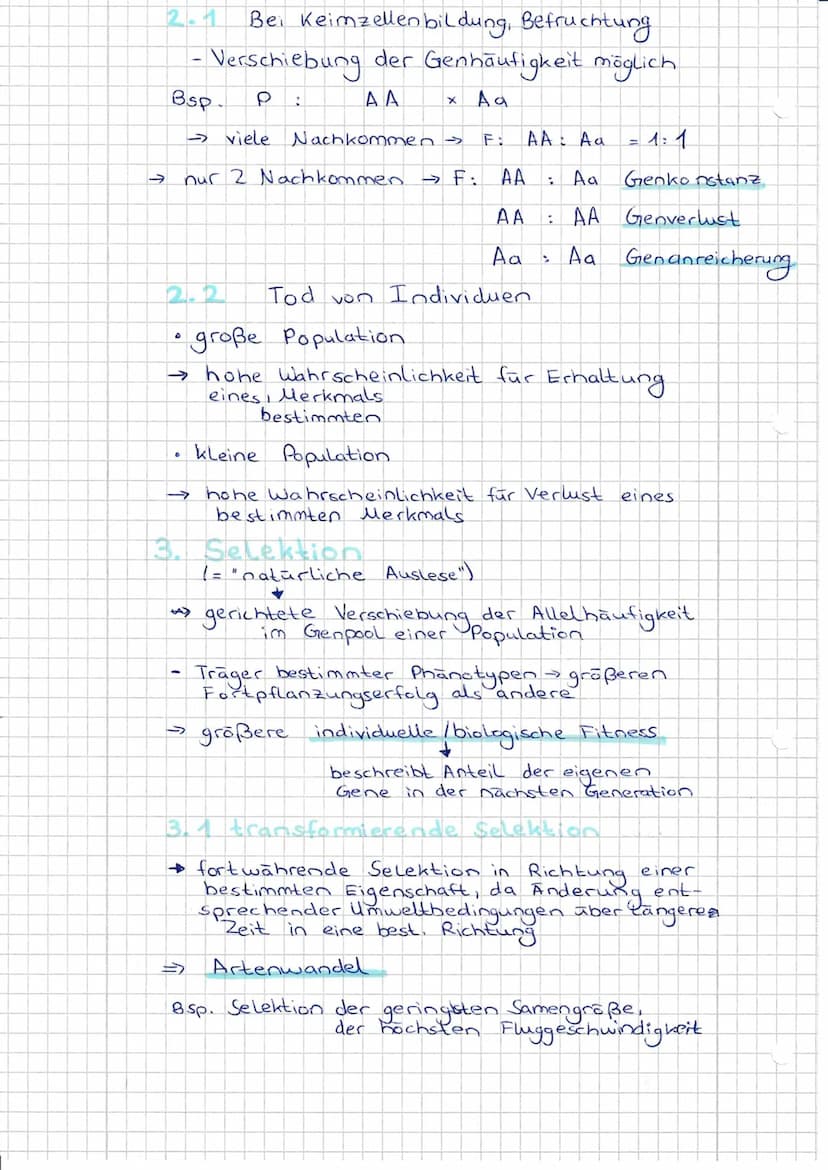 2.1 Bei Keimzellenbildung, Befruchtung
- Verschiebung der Genhäufigkeit möglich
Bsp. P : AA x Aa
→ viele Nachkommen → F: AA : Aa = 1:1
→ nur 2 Nachkommen → F: AA : Aa Genkonstanz
AA : AA Genverlust
Aa : Aa Genanreicherung
2.2 Tod von Individuen
• große Population
→ hohe Wahrscheinlichkeit für Erhaltung
eines, Merkmals
bestimmten
• kleine Population
→ hohe Wahrscheinlichkeit für Verlust eines
bestimmten Merkmals
3. Selektion
(= "natürliche Auslese")
↓
⇝ gerichtete Verschiebung der Allelhäufigkeit
im Genpool einer Population
- Träger bestimmter Phänotypen → größeren
Fortpflanzungserfolg als andere
→ größere individuelle / biologische Fitness
↓
beschreibt Anteil der eigenen
Gene in der nächsten Generation
3.1 transformierende Selektion
→ fortwährende Selektion in Richtung einer
bestimmten Eigenschaft, da Änderung ent-
sprechender Umweltbedingungen über längere
Zeit in eine best. Richtung
⇒ Artenwandel
Bsp. Selektion der geringsten Samengröße,
der höchsten Fluggeschwindigkeit